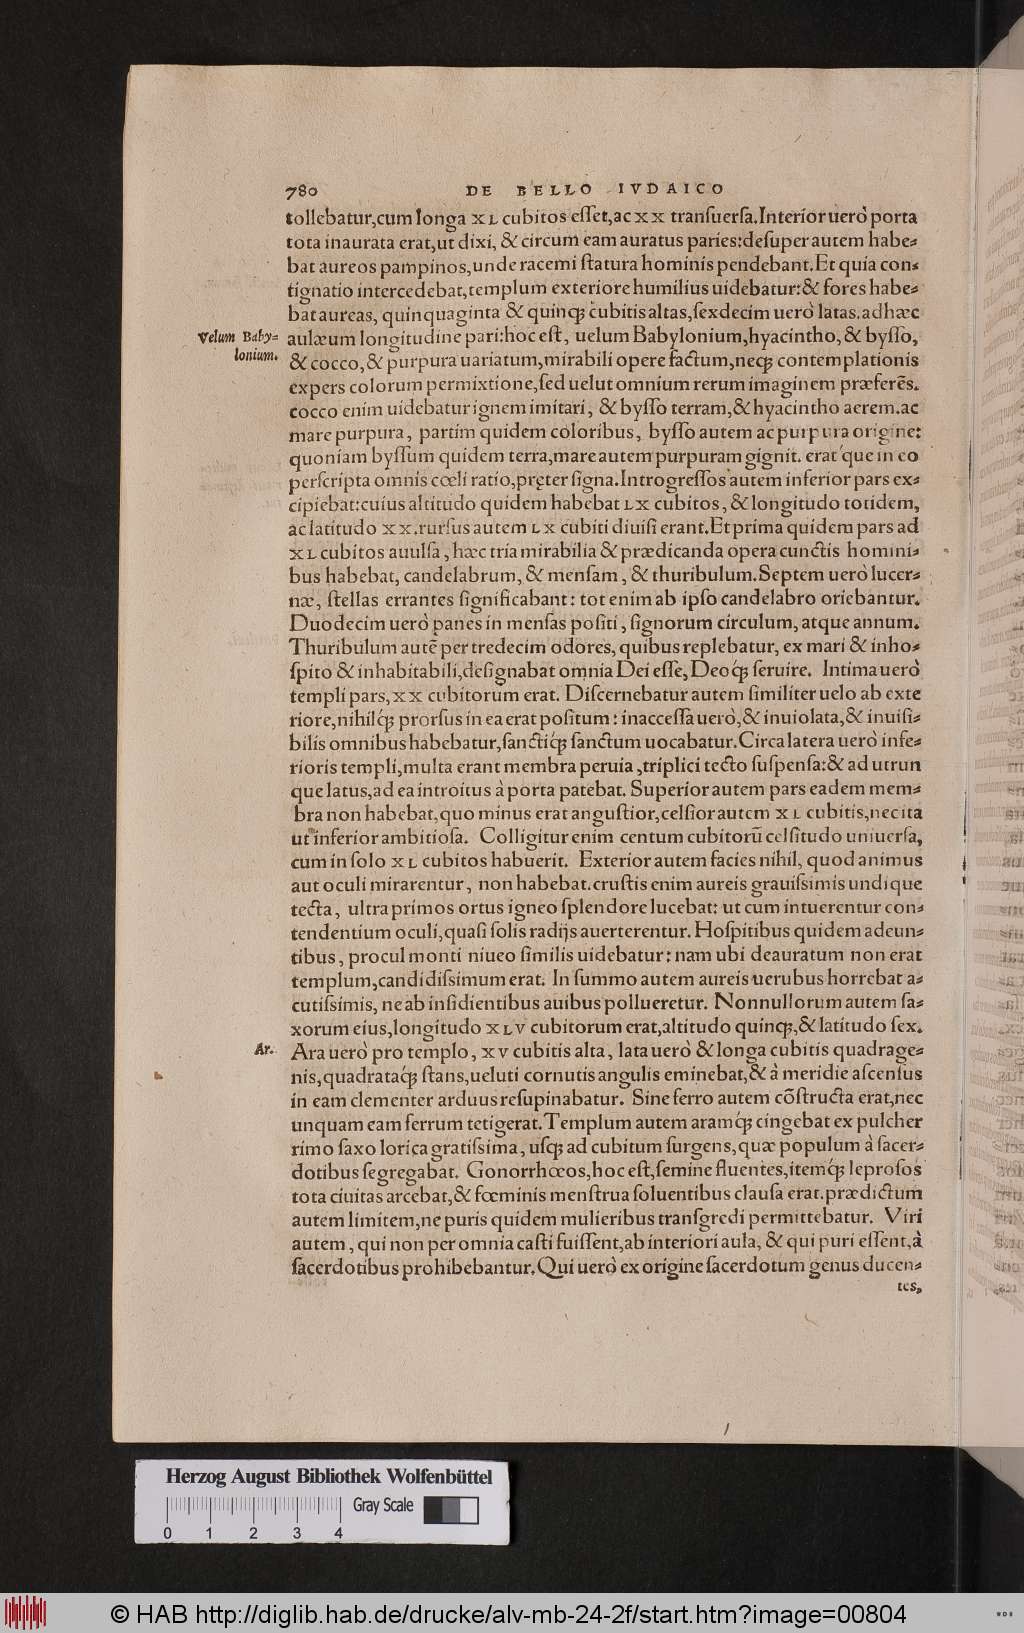 780 DE BELLO IVDAICO
tollebatur,cum longa XL cubitos eſſet,ac XX tranſuerſa.Interior uerò porta
tota inaurata erat,ut dixi, & circum eam auratus paries:deſuper autem habe-
bat aureos pampinos,unde racemi ſtatura hominis pendebant.Et quia con-
tignatio intercedebat,templum exteriore humilius uidebatur:& fores habe-
bat aureas, quinquaginta & quinqꝫ cubitis altas,ſexdecim uerò latas.adhæc
Velum Baby-
lonium.
aulæum longitudine pari:hoc eſt, uelum Babylonium,hyacintho,& byſſo,
& cocco,& purpura uariatum,mirabili opere factum,neqꝫ contemplationis
expers colorum permixtione,ſed uelut omnium rerum imaginem præferẽs.
cocco enim uidebatur ignem imitari, & byſſo terram,& hyacintho aerem.ac
mare purpura, partim quidem coloribus, byſſo autem ac purpura origine:
quoniam byſſum quidem terra,mare autem purpuram gignit. erat que in eo
perſcripta omnis cœli ratio,pręter ſigna.Introgreſſos autem inferior pars ex-
cipiebat:cuius altitudo quidem habebat LX cubitos, & longitudo totidem,
ac latitudo XX.rurſus autem LX cubiti diuiſi erant.Et prima quidem pars ad
XL cubitos auulſa, hæc tria mirabilia & prædicanda opera cunctis homini-
bus habebat, candelabrum, & menſam, & thuribulum.Septem uerò lucer-
næ, ſtellas errantes ſignificabant: tot enim ab ipſo candelabro oriebantur.
Duodecim uerò panes in menſas poſiti, ſignorum circulum, atque annum.
Thuribulum autẽ per tredecim odores, quibus replebatur, ex mari & inho-
ſpito & inhabitabili,deſignabat omnia Dei eſſe,Deoqꝫ ſeruire. Intima uerò
templi pars,XX cubitorum erat. Diſcernebatur autem ſimiliter uelo ab exte
riore,nihilqꝫ prorſus in ea erat poſitum: inacceſſa uerò,& inuiolata,& inuiſi-
bilis omnibus habebatur,ſanctiqꝫ ſanctum uocabatur.Circa latera uerò infe-
rioris templi,multa erant membra peruia,triplici tecto ſuſpenſa:& ad utrun
que latus,ad ea introitus à porta patebat. Superior autem pars eadem mem-
bra non habebat,quo minus erat anguſtior,celſior autem XL cubitis,nec ita
ut inferior ambitioſa. Colligitur enim centum cubitorũ celſitudo uniuerſa,
cum in ſolo XL cubitos habuerit. Exterior autem facies nihil, quod animus
aut oculi mirarentur, non habebat.cruſtis enim aureis grauiſsimis undique
tecta, ultra primos ortus igneo ſplendore lucebat: ut cum intuerentur con-
tendentium oculi,quaſi ſolis radijs auerterentur.Hoſpitibus quidem adeun-
tibus, procul monti niueo ſimilis uidebatur: nam ubi deauratum non erat
templum,candidiſsimum erat. In ſummo autem aureis uerubus horrebat a-
cutiſsimis, ne ab inſidientibus auibus pollueretur. Nonnullorum autem ſa-
xorum eius,longitudo XLV cubitorum erat,altitudo quinqꝫ,& latitudo ſex.
Ar.
Ara uerò pro templo, XV cubitis alta, lata uerò & longa cubitis quadrage-
nis,quadrataqꝫ ſtans,ueluti cornutis angulis eminebat,& à meridie aſcenſus
in eam clementer arduus reſupinabatur. Sine ferro autem cõſtructa erat,nec
unquam eam ferrum tetigerat.Templum autem aramqꝫ cingebat ex pulcher
rimo ſaxo lorica gratiſsima, uſqꝫ ad cubitum ſurgens,quæ populum à ſacer-
dotibus ſegregabat. Gonorrhœos,hoc eſt,ſemine fluentes,itemqꝫ leproſos
tota ciuitas arcebat,& fœminis menſtrua ſoluentibus clauſa erat.prædictum
autem limitem,ne puris quidem mulieribus tranſgredi permittebatur. Viri
autem, qui non per omnia caſti fuiſſent,ab interiori aula, & qui puri eſſent,à
ſacerdotibus prohibebantur.Qui uerò ex origine ſacerdotum genus ducen-
tes,
Herzog August Bibliothek Wolfenbüttel
Gray Scale
0 1 2 3 4
© HAB http://diglib.hab.de/drucke/alv-mb-24-2f/start.htm?image=00804